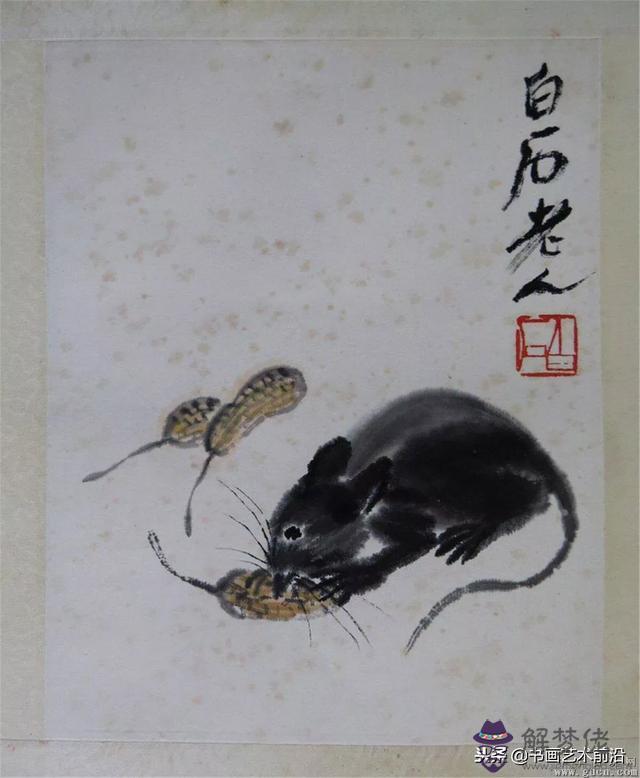 白石老人
白石
解梦佬
头条@书画艺术前沿
www.gdcn.com